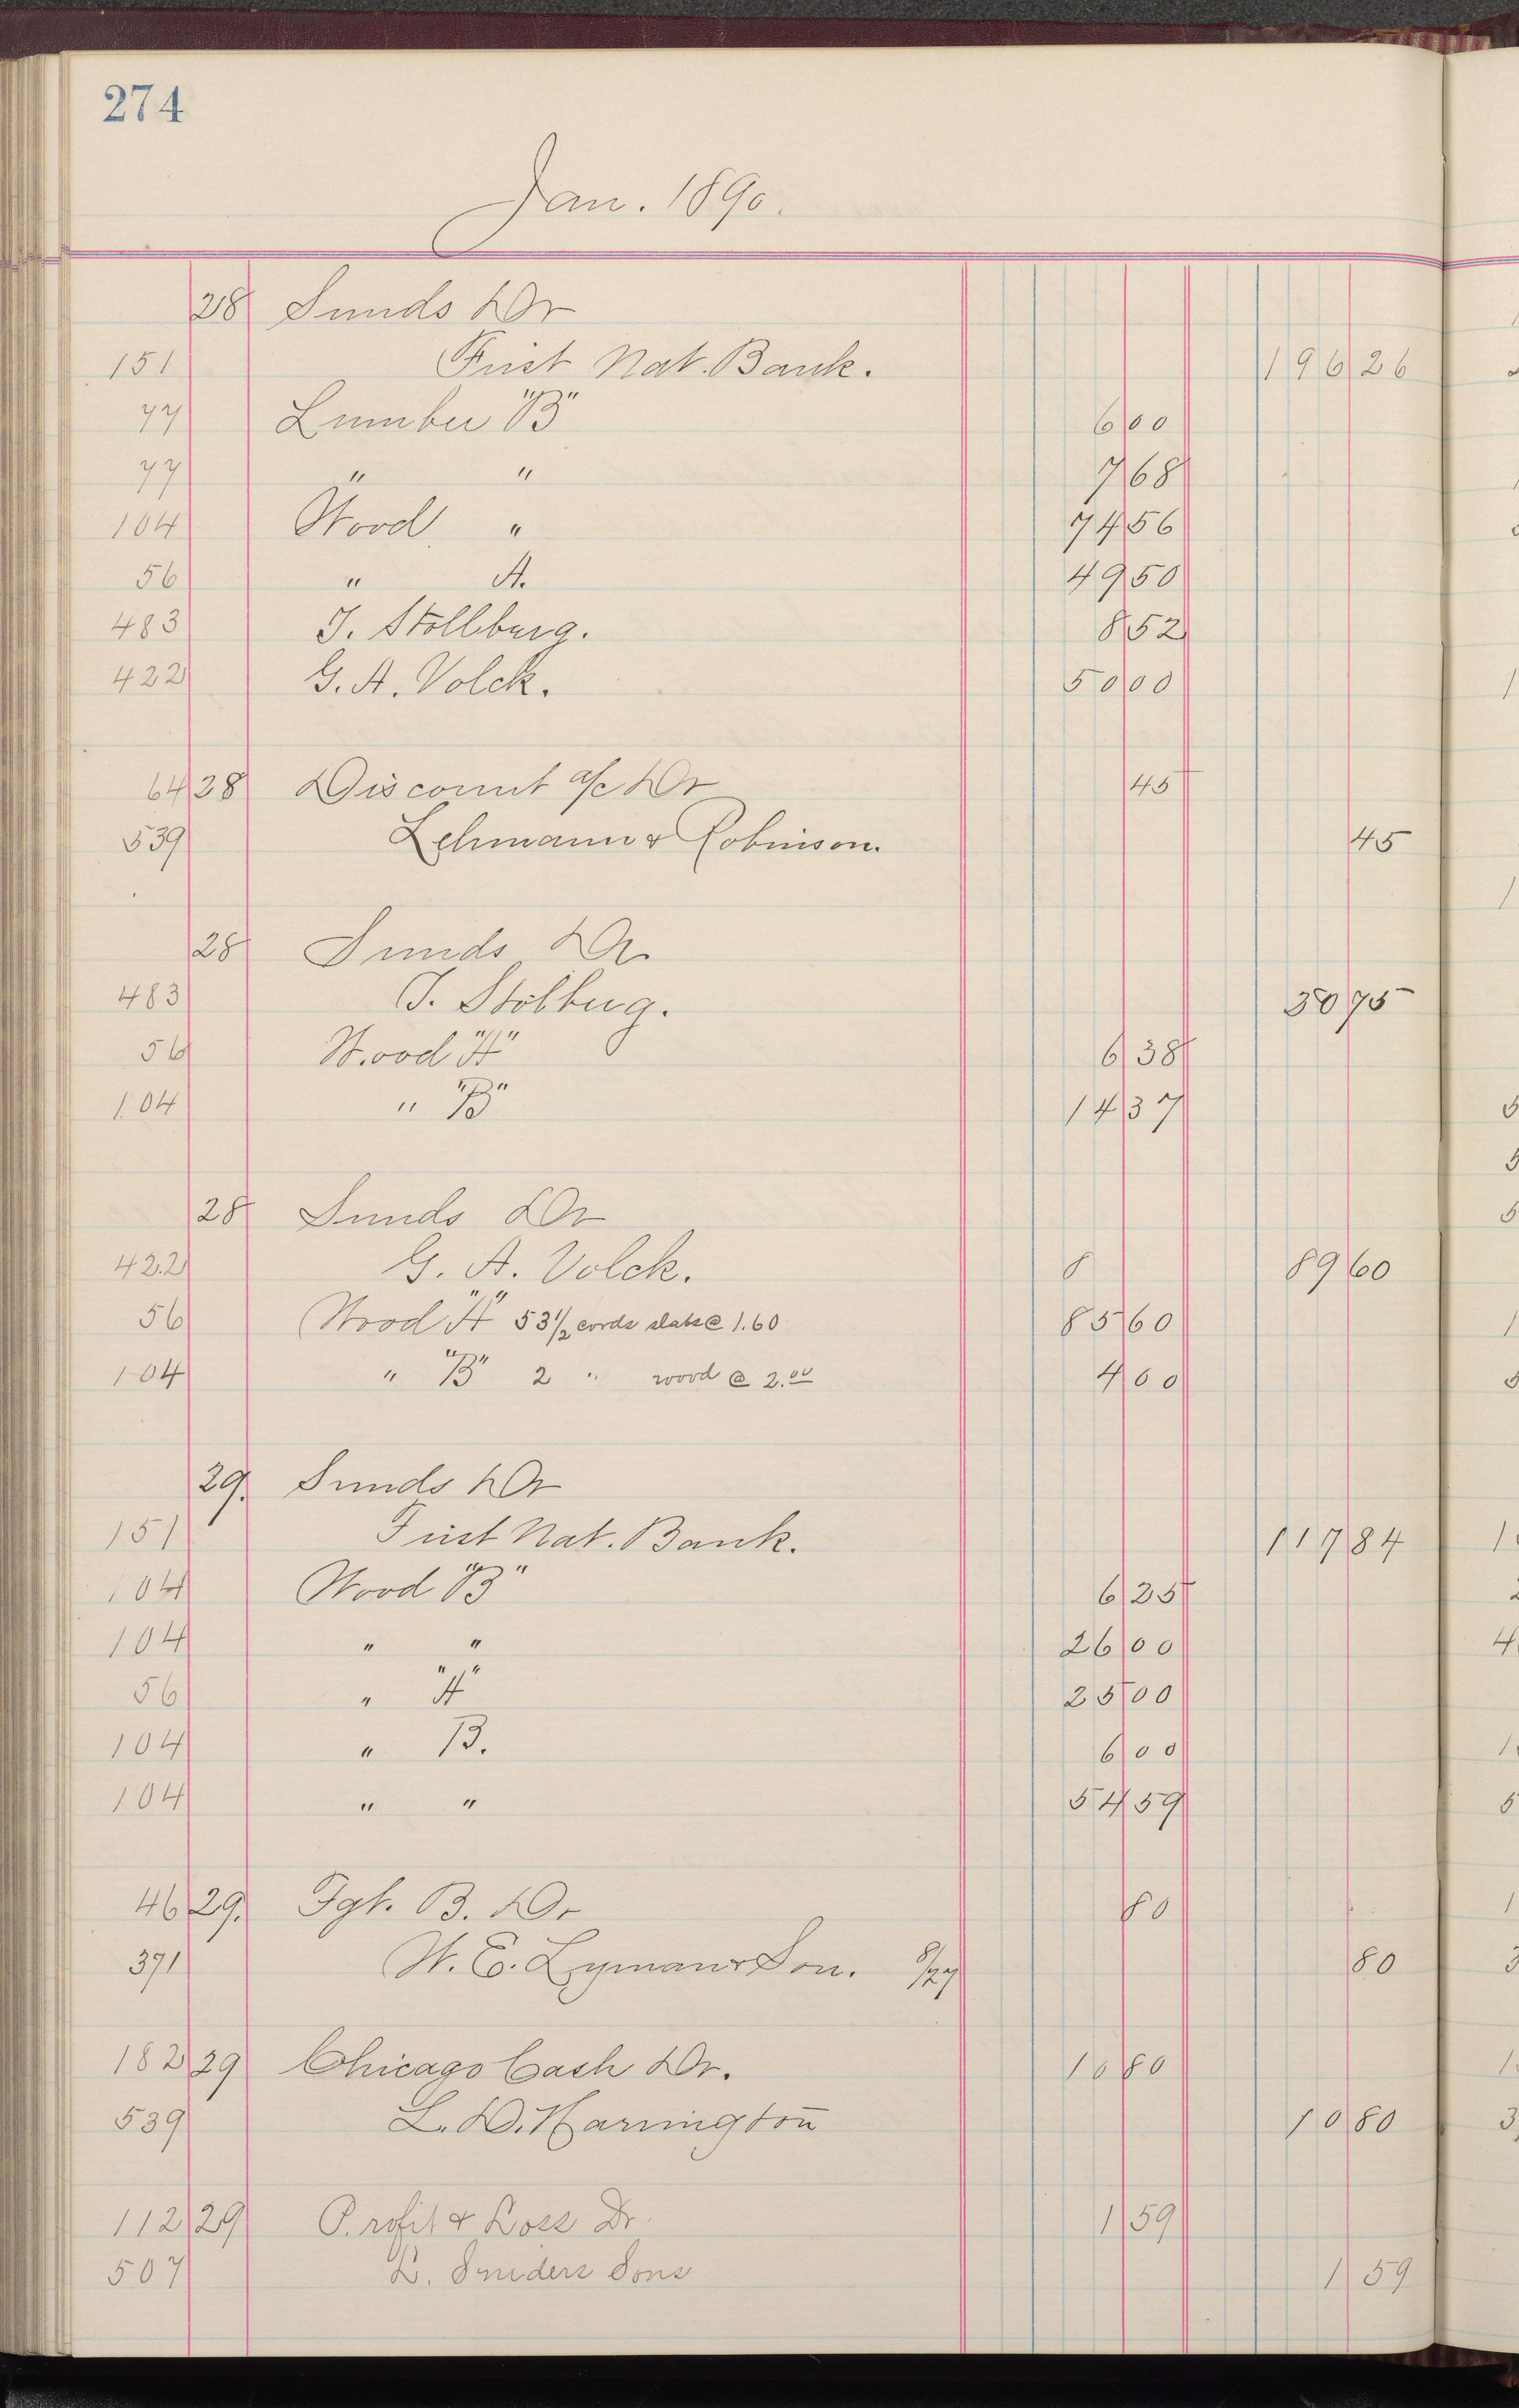 274
Jan. 1890.
28 Sunds Dr
151 First Nat. Bank. 196 26
77 Lumber "B" 6 00
77 " " 7 68
104 Wood " 74 56
56 " A. 49 50
483 J. Stollburg. 8 52
422 G. A. Volck. 50 00
64 28 Discount a/c Dr 45
539 Lehmann & Robinson. 45
28 Sunds Dr.
483 J. Stolburg. 30 75
56 Wood "A" 6 38
104 " "B" 14 37
28 Sunds Dr
422 G. A. Volck. 8 89 60
56 Wood "A" 53 1/2 cords slabs @ 1.60 85 60
104 " "B" 2 " wood @ 2.00 4 00
29. Sunds Dr
151 First Nat. Bank. 117 84
104 Wood "B" 6 25
104 " " 26 00
56 " "A" 25 00
104 " B. 6 00
104 " " 54 59
46 29. Fgt. B. Dr 80
371 W. E. Lyman & Son. 8/27 80
182 29 Chicago Cash Dr. 10 80
539 L. D. Harrington 10 80
112 29 Profit & Loss Dr. 1 59
507 Sons 1 59